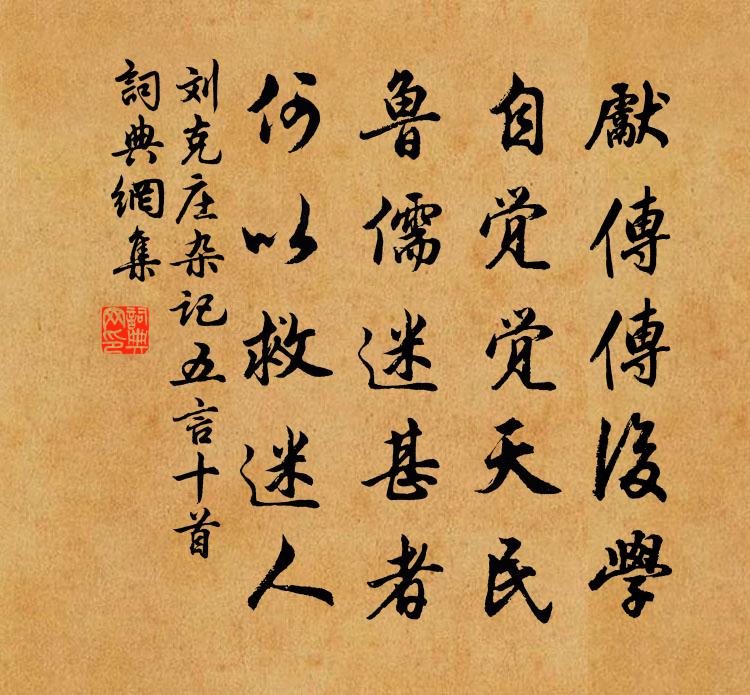 献傳傳後學
自觉觉天民
魯儒迷甚者
何以救迷人
刘克庄杂记五言十首
詞典網集
詞典網印